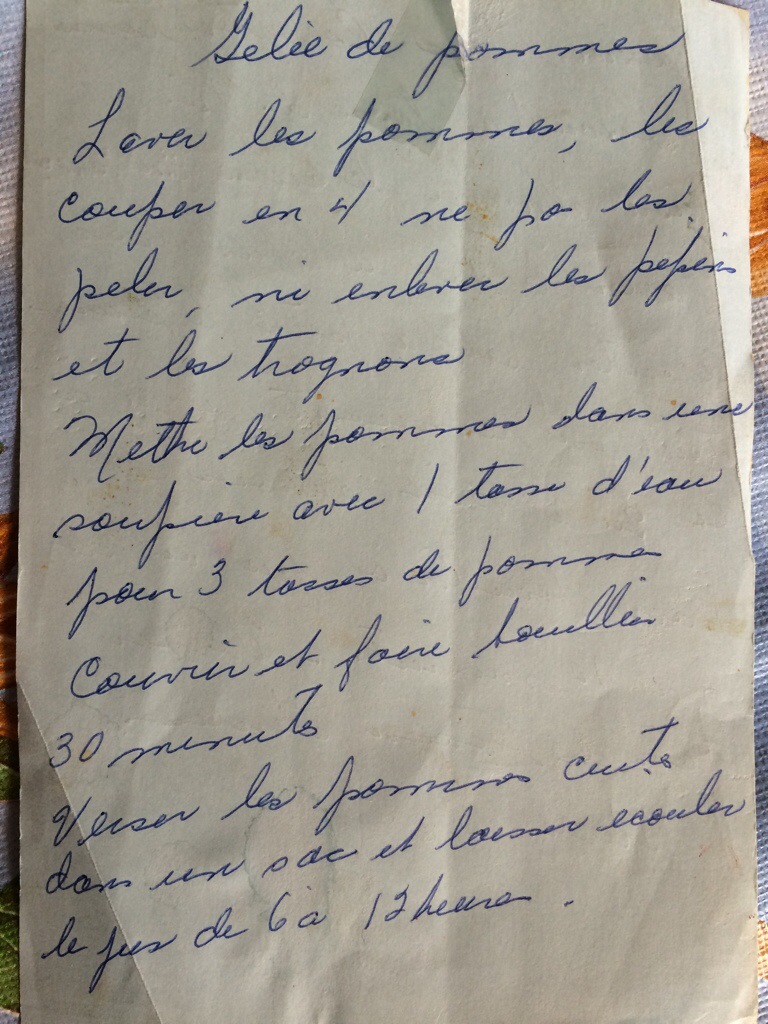 Gelée de pommes
Laver les pommes, les
couper en 4 ne pas les
peler, ni enlever les pépins
et les trognons
Mettre les pommes dans une
soupière avec 1 tasse d'eau
pour 3 tasses de pommes
Couvrir et faire bouillir
30 minutes
Verser les pommes cuites
dans un sac et laisser ecouler
le jus de 6 à 12 heures.